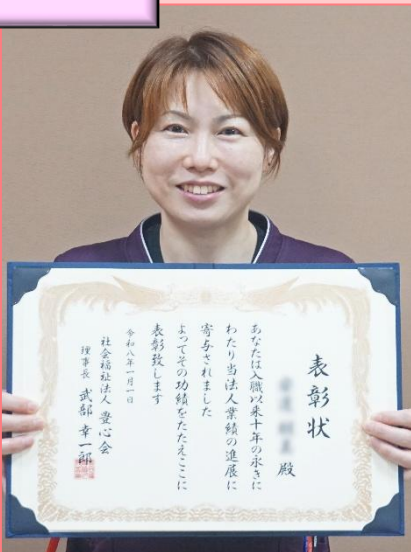 表彰状
殿
あなたは入職以来十年の永きに
わたり当法人業績の進展に
寄与されました
よってその功績をたたえここに
表彰致します
令和八年一月一日
社会福祉法人 愛心会
理事長 武部 幸一郎